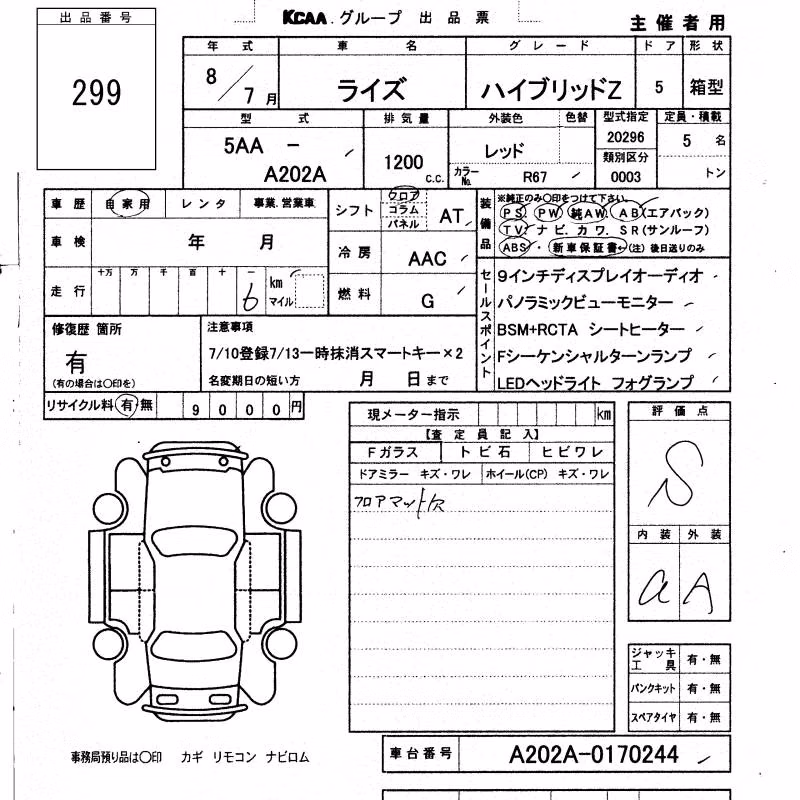 KCAA. グループ 出品票
主催者用
出品番号
299
年式 車名 グレード ドア 形状
8/7月 ライズ ハイブリッドZ 5 箱型
型式 排気量 外装色 色替 型式指定 定員・積載
5AA - A202A
1200 C.C.
レッド
カラーNo. R67
20296
類別区分
0003
5 名
トン
車歴 自家用 レンタ 事業.営業車
車検 年 月
走行 十万 万 千 百 十 一
6 km マイル
シフト フロア コラム パネル AT
冷房 AAC
燃料 G
装備品
※純正のみ〇印をつけて下さい。
PS PW 純AW. AB(エアバック)
TV ナビ. カワ. SR(サンルーフ)
ABS ・ 新車保証書←(注) 後日送りのみ
セールスポイント
9インチディスプレイオーディオ
パノラミックビューモニター
BSM+RCTA シートヒーター
Fシーケンシャルターンランプ
LEDヘッドライト フォグランプ
修復歴 箇所
有
(有の場合は〇印を)
注意事項
7/10登録7/13一時抹消スマートキー×2
名変期日の短い方 月 日まで
リサイクル料 有・無 9000円
現メーター指示 km
【査定員記入】
Fガラス トビ石 ヒビワレ
ドアミラー キズ・ワレ ホイール(CP) キズ・ワレ
フロアマット欠
評価点
S
内装 外装
a A
ジャッキ工具 有・無
パンクキット 有・無
スペアタイヤ 有・無
事務局預り品は〇印 カギ リモコン ナビロム
車台番号 A202A-0170244